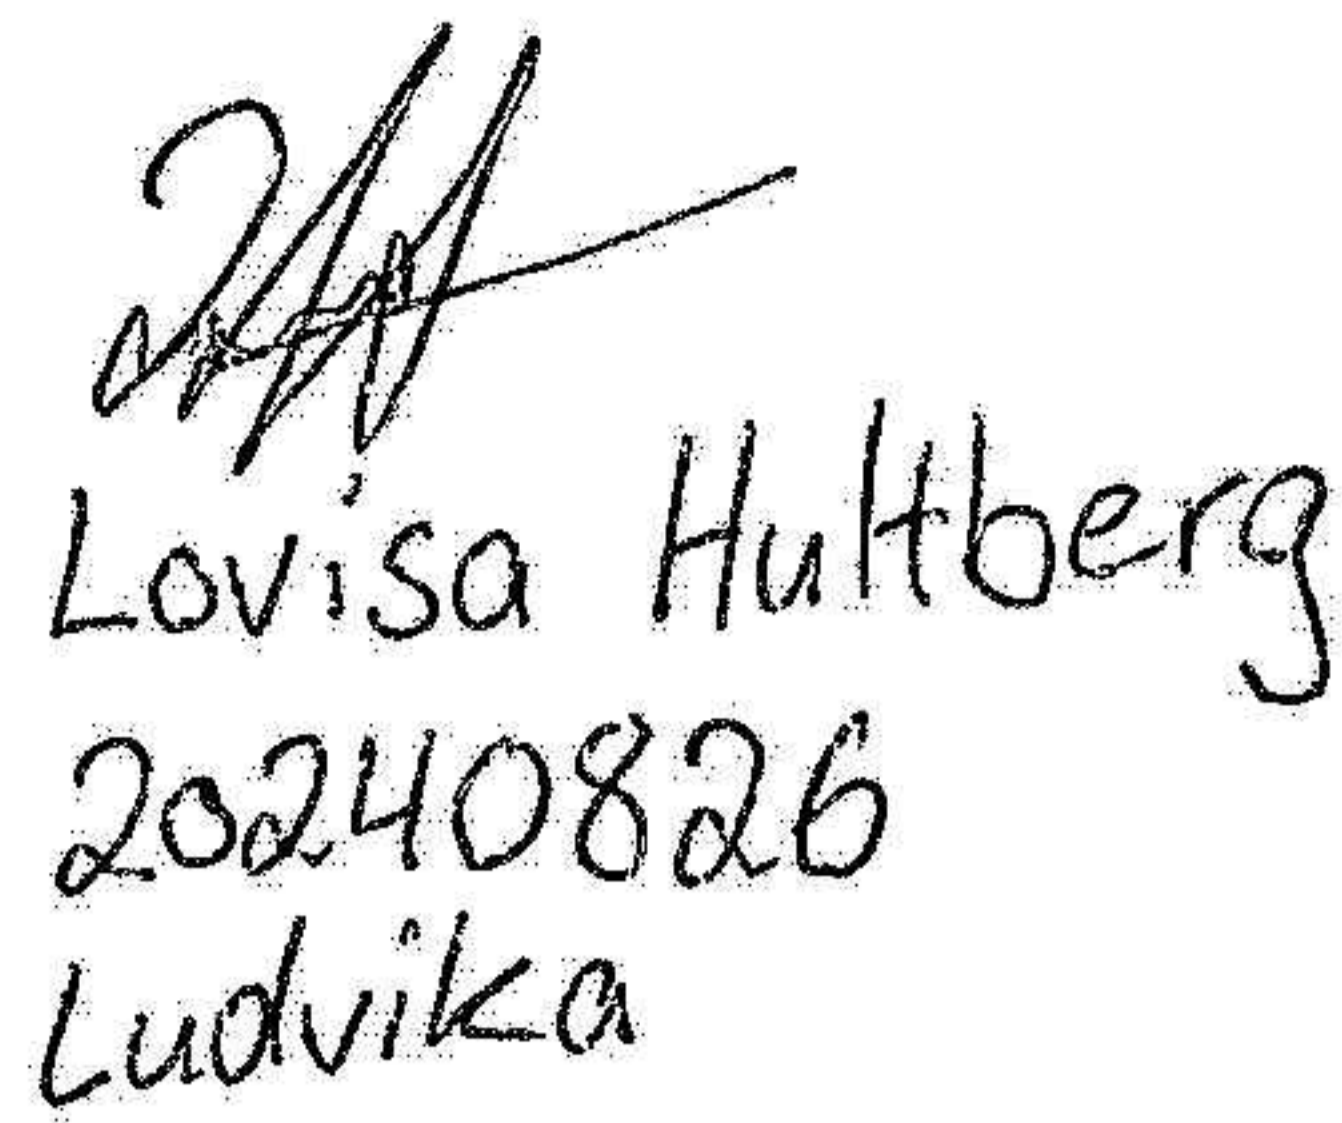 Lovisa Hultberg
20240826
Ludvika